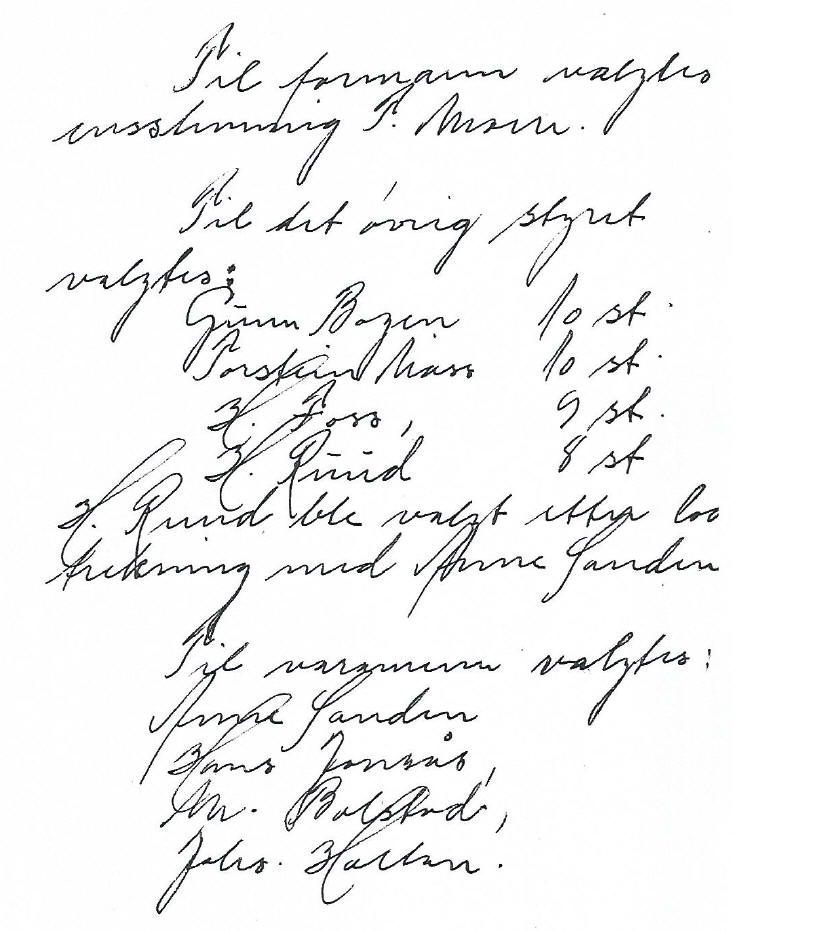 Til formann valgtes
ensstemmig T. Moen.
Til det øvrig styret
valgtes:
Gunn Bogen 10 st.
Torstein Moss 10 st.
H. Foss, 9 st.
H. Ruud 8 st
H. Ruud ble valgt etter loo
trekning med Anne Sanden
Til varamenn valgtes:
Anne Sanden
Hans Jonsås,
M. Bolstad,
Johs. Hallan.